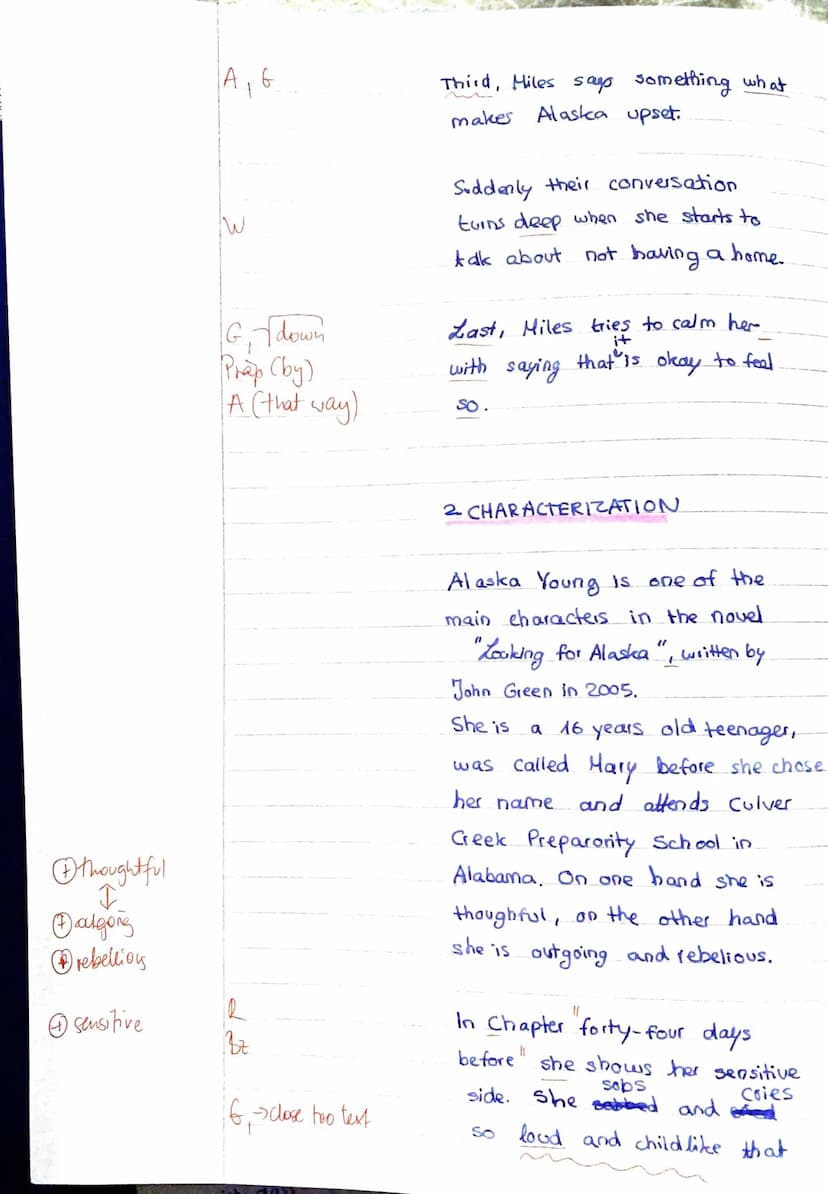 A, G
Third, Miles says something what
makes Alaska upset.
Suddenly their conversation
W
turns deep when she starts to
talk about not having a home.
G, √down
Last, Miles tries to calm her
Präp (by)
with saying that it is okay to feel
A (that way)
so.
2 CHARACTERIZATION
Alaska Young is one of the
main characters in the novel
"Looking for Alaska", written by
John Green in 2005.
She is a 16 years old teenager,
was called Mary before she chose
her name and attends Culver
Creek Preparority School in
⊕ thoughtful
Alabama. On one hand she is
⊕ outgoing
thoughful, on the other hand
⊕ rebellious
she is outgoing and rebelious.
R
⊕ sensitive
In Chapter "forty-four days
Bz
before" she shows her sensitive
side. She sobs and cries
G, → close too text
so loud and childlike that